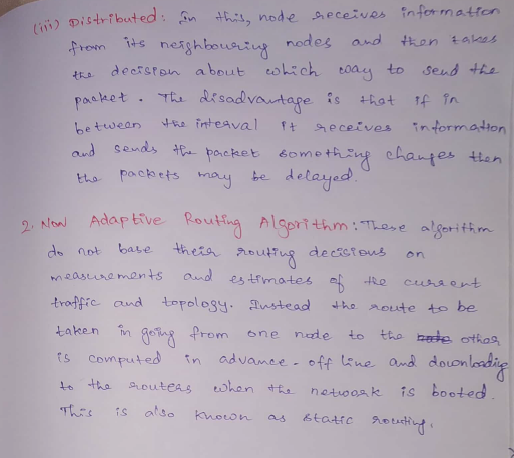 (iii) Distributed: In this, node receives information
from its neighbouring nodes and then takes
the decision about which way to send the
packet. The disadvantage is that if in
between the interval it receives information
and sends the packet something changes then
the packets may be delayed.
2. Non Adaptive Routing Algorithm: These algorithm
do not base their routing decisions on
measurements and estimates of the current
traffic and topology. Instead the route to be
taken in going from one node to the node other
is computed in advance - off line and downloading
to the routers when the network is booted.
This is also known as static routing.